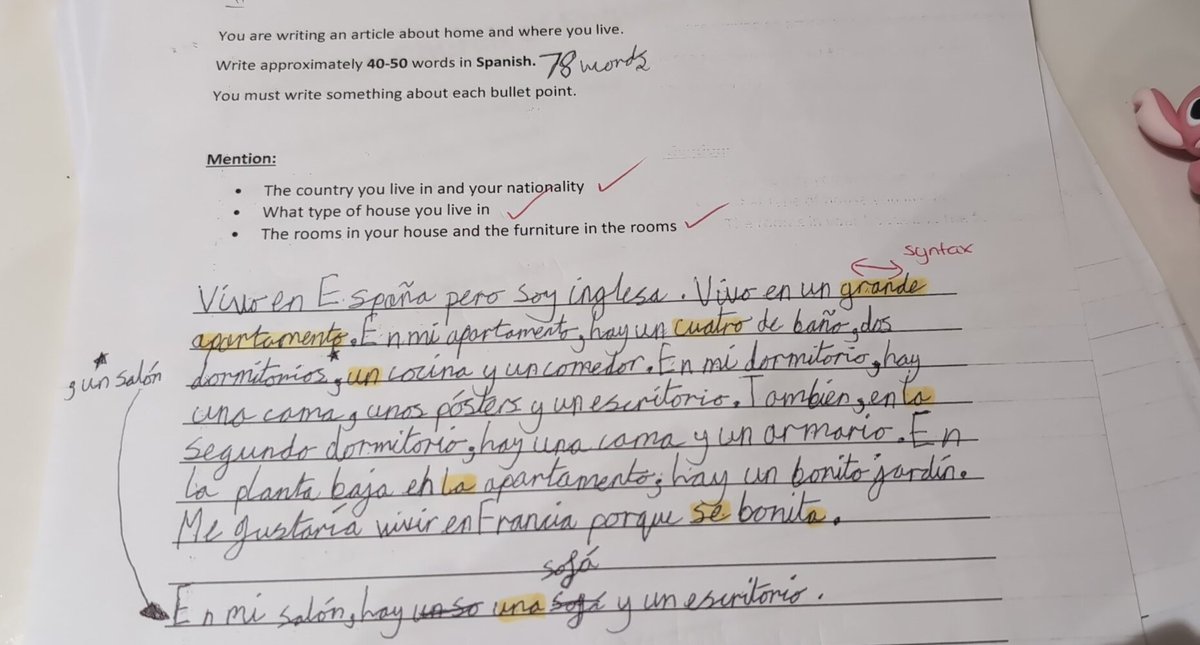 You are writing an article about home and where you live.
Write approximately 40-50 words in Spanish. 78 words
You must write something about each bullet point.
Mention:
• The country you live in and your nationality
• What type of house you live in
• The rooms in your house and the furniture in the rooms
syntax
Vivo en España pero soy inglesa. Vivo en un grande
apartamento. En mi apartamento, hay un cuatro de baño, dos
, un salón
dormitorios, un cocina y un comedor. En mi dormitorio, hay
una cama, unos pósters y un escritorio. También, en la
segundo dormitorio, hay una cama y un armario. En
la planta baja en la apartamento, hay un bonito jardín.
Me gustaría vivir en Francia porque se bonita.
sofá
En mi salón, hay un so una sofá y un escritorio.